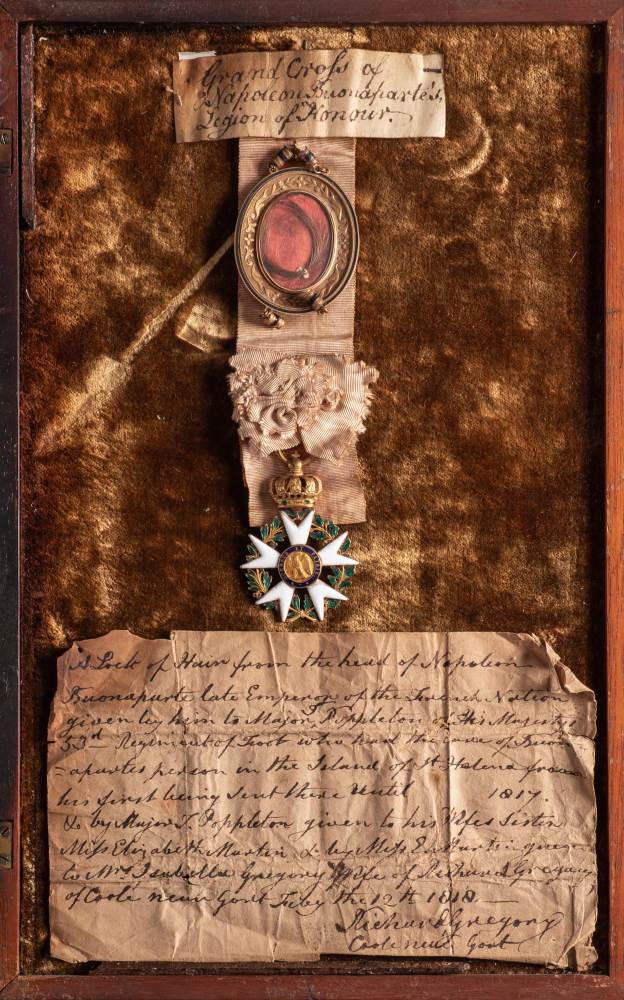 Grand Cross of
Napoleon Buonaparte's
Legion of Honour.
A Lock of Hair from the head of Napoleon
Buonaparte late Emperor of the French Nation
given by him to Major Poppleton of His Majestys
53rd Regiment of Foot who had the care of Buon
=apartes person in the Island of St Helena from
his first being sent there until 1817.
& by Major T. Poppleton given to his Wifes Sister
Miss Elizabeth Martin & by Miss E. Martin given
to Mrs Isabella Gregory Wife of Richard Gregory
of Coole near Gort Feby the 12th 1818
Richard Gregory
Coole near Gort